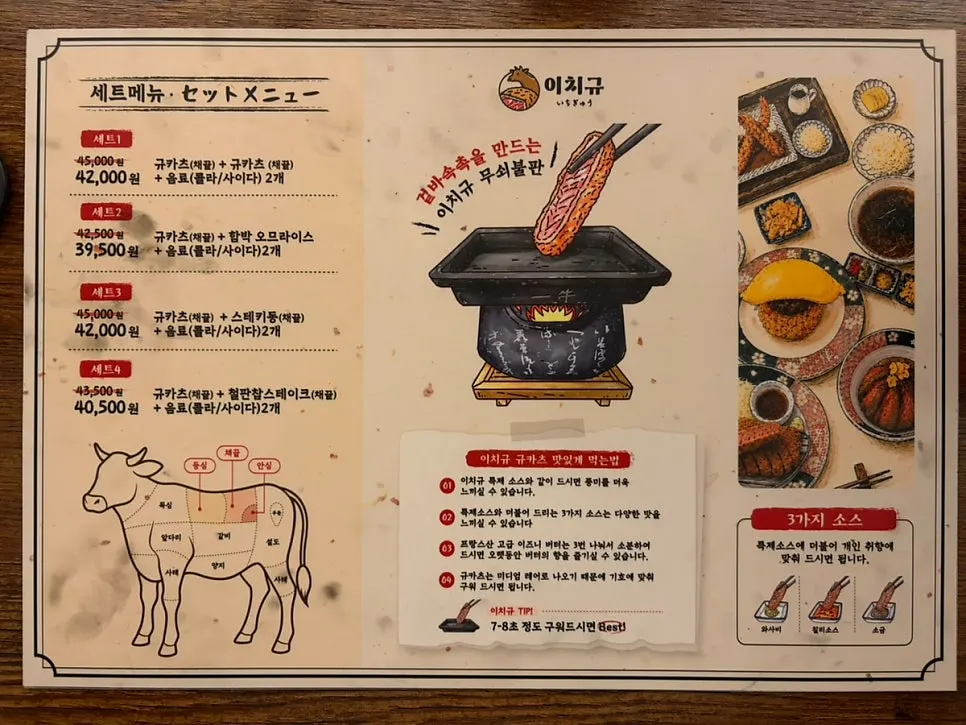 세트메뉴·セットメニュー
세트1
45,000원
42,000원
규카츠(채끝) + 규카츠 (채끝)
+ 음료(콜라/사이다) 2개
세트2
42,500원
39,500원
규카츠(채끝) + 함박 오므라이스
+ 음료(콜라/사이다)2개
세트3
45,000원
42,000원
규카츠(채끝) + 스테키동(채끝)
+ 음료(콜라/사이다)2개
세트4
43,500원
40,500원
규카츠(채끝) + 철판찹스테이크(채끝)
+ 음료(콜라/사이다)2개
등심
채끝
안심
목심
앞다리
갈비
우둔
설도
양지
사태
사태
이치규
いちぎゅう
겉바속촉을 만드는
이치규 무쇠불판
牛
이치규 규카츠 맛있게 먹는법
01 이치규 특제 소스와 같이 드시면 풍미를 더욱
느끼실 수 있습니다.
02 특제소스와 더불어 드리는 3가지 소스는 다양한 맛을
느끼실 수 있습니다
03 프랑스산 고급 이즈니 버터는 3번 나눠서 소분하여
드시면 오랫동안 버터의 향을 즐기실 수 있습니다.
04 규카츠는 미디엄 레어로 나오기 때문에 기호에 맞춰
구워 드시면 됩니다.
이치규 TIP!
7-8초 정도 구워드시면 Best!
3가지 소스
특제소스에 더불어 개인 취향에
맞춰 드시면 됩니다.
와사비
칠리소스
소금